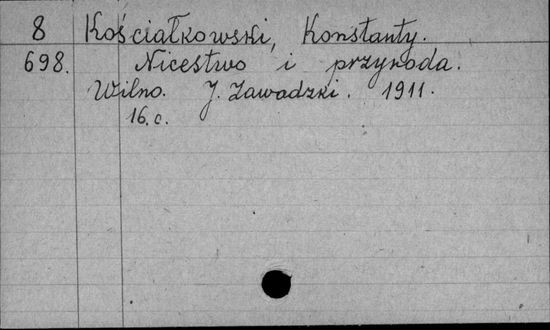 8 Kościałkowski, Konstanty.
698. Nicestwo i przyroda.
Wilno. J. Zawadzki. 1911.
16.c.